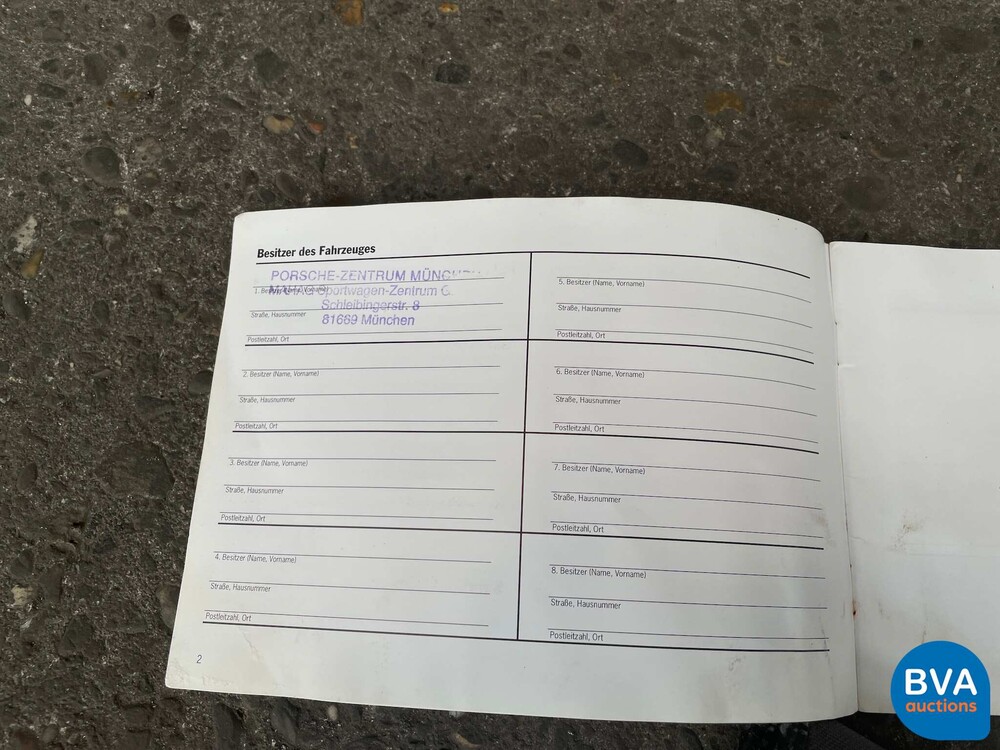 Besitzer des Fahrzeuges
PORSCHE-ZENTRUM
MAHAG Sportwagen-Zentrum
Schleibingerstr. 8
81669 München
1. Besitzer (Name, Vorname)
Straße, Hausnummer
Postleitzahl, Ort
2. Besitzer (Name, Vorname)
Straße, Hausnummer
Postleitzahl, Ort
3. Besitzer (Name, Vorname)
Straße, Hausnummer
Postleitzahl, Ort
4. Besitzer (Name, Vorname)
Straße, Hausnummer
Postleitzahl, Ort
5. Besitzer (Name, Vorname)
Straße, Hausnummer
Postleitzahl, Ort
6. Besitzer (Name, Vorname)
Straße, Hausnummer
Postleitzahl, Ort
7. Besitzer (Name, Vorname)
Straße, Hausnummer
Postleitzahl, Ort
8. Besitzer (Name, Vorname)
Straße, Hausnummer
Postleitzahl, Ort
2
BVA
auctions